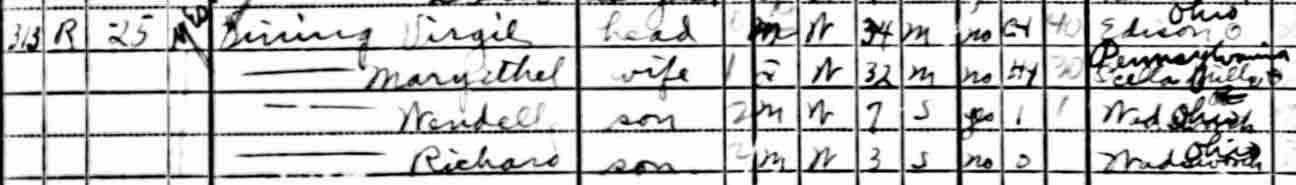 313 R 25 No Bining Virgil head m W 34 m no H4 40 Edison O Ohio
— Maryethel wife 1 W 32 m no H4 30 Pennsylvania
— Wendell son 2 m W 7 s yes 1 1 Ohio
— Richard son 2 m W 3 s no 0 Wadsworth Ohio